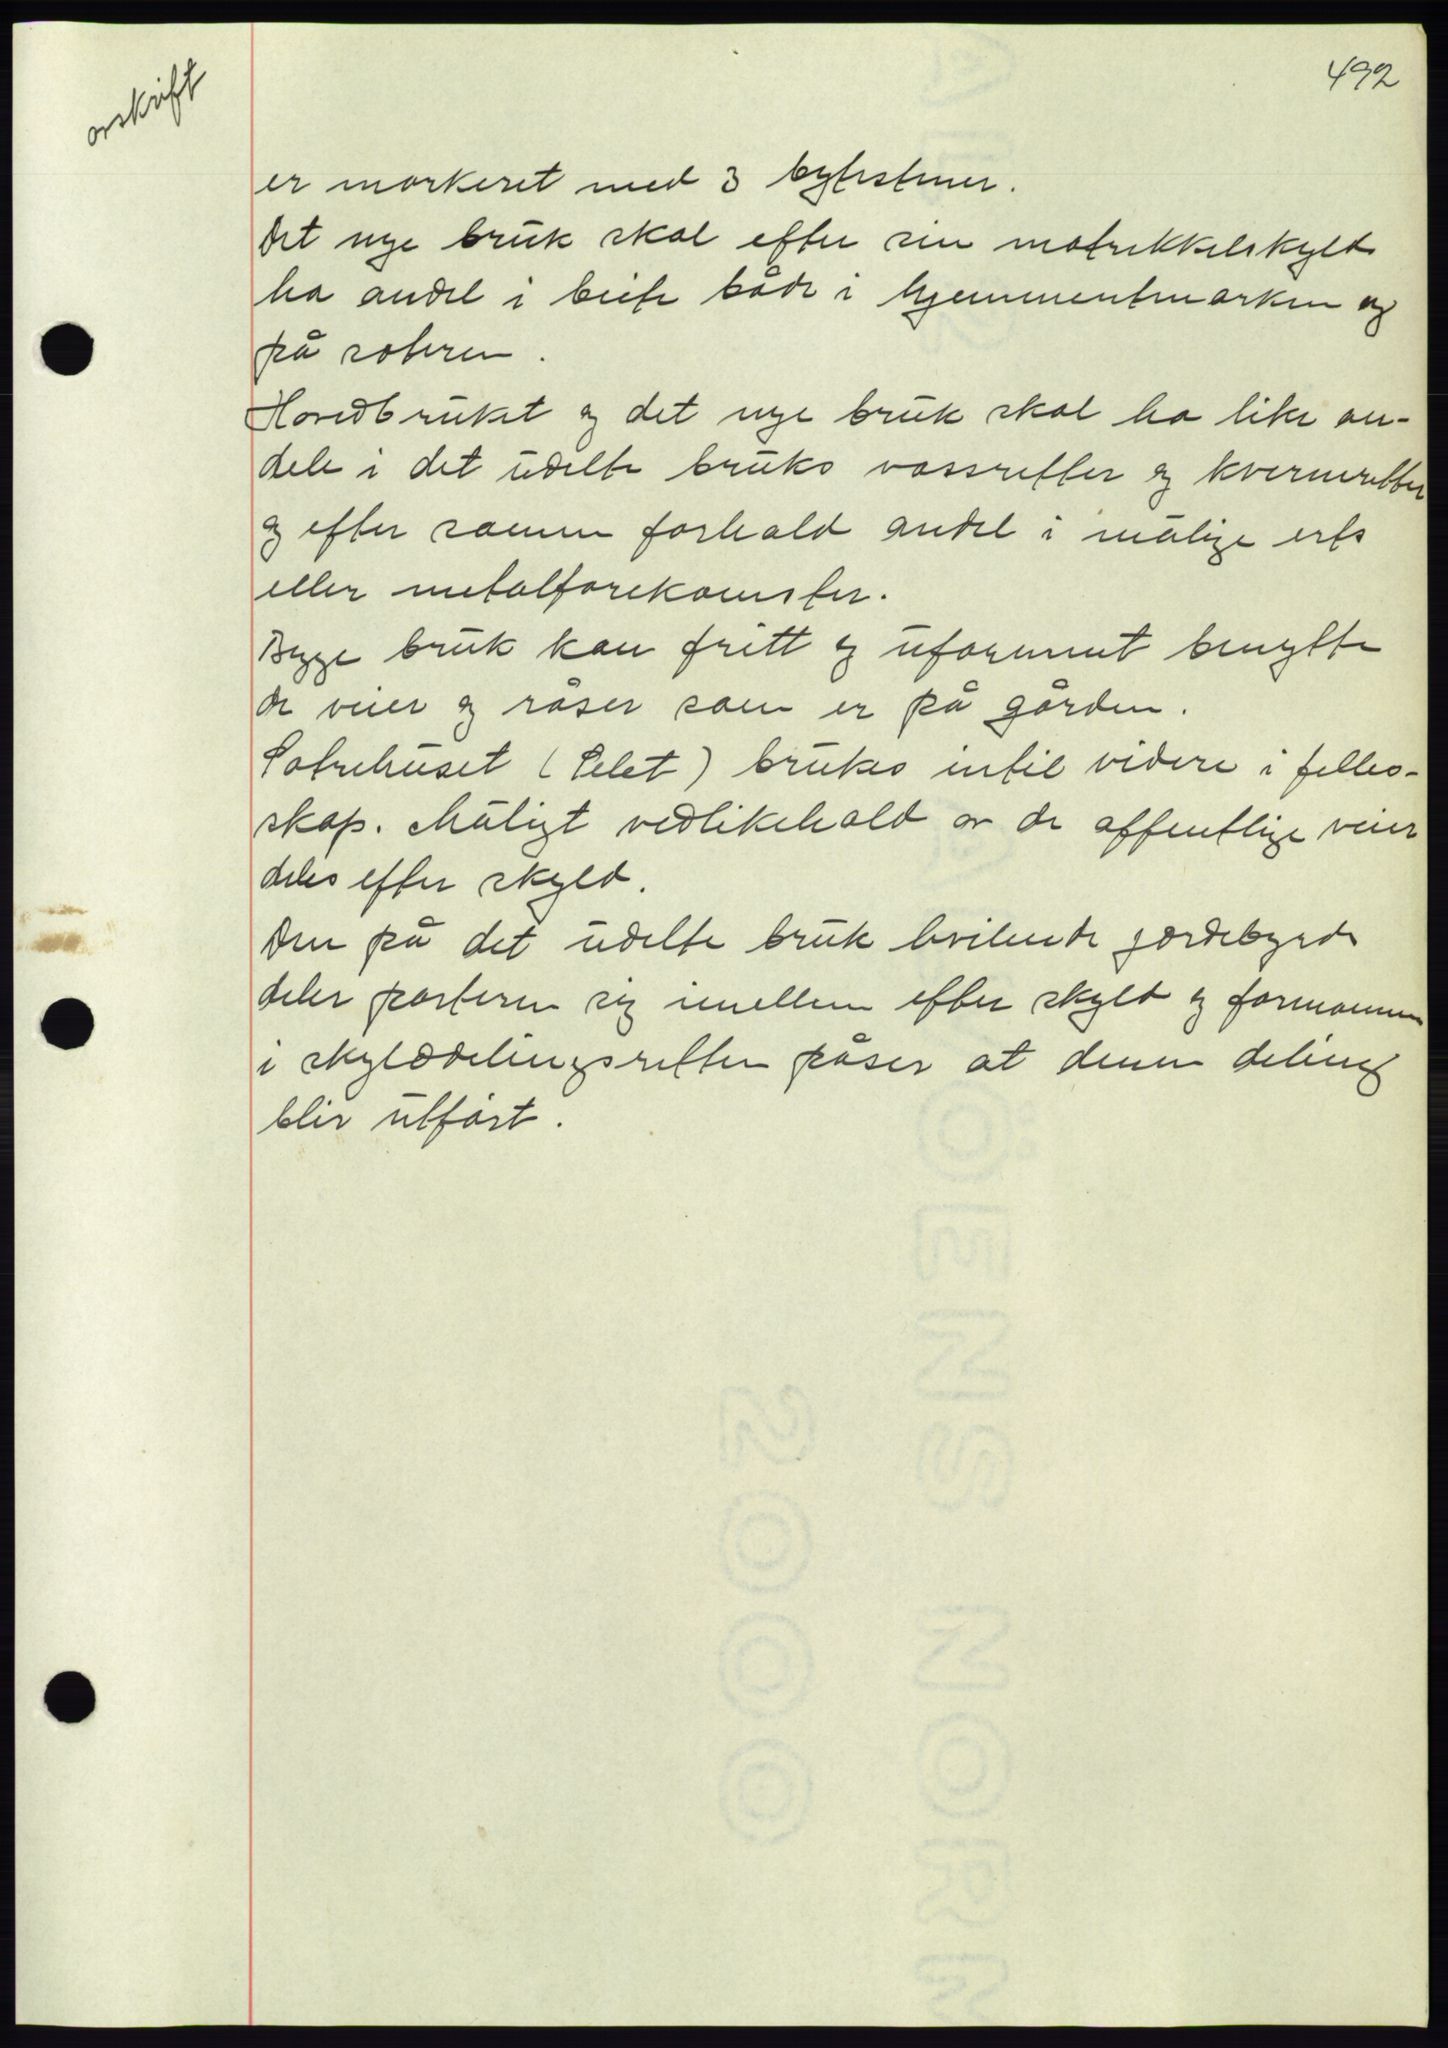 492
avskrift
er markeret med 3 bytestener.
Det nye bruk skal efter sin matrikkelskyld
ha andel i beite både i hjemmentmarken og
på sæteren.
Hovedbruket og det nye bruk skal ha like an-
dele i det udelte bruks vassretter og kvernretter
og efter samme forhold andel i mulige erts
eller metalforekomster.
Begge bruk kan fritt og uforment benytte
de veier og råser som er på gården.
Sætrehuset (Selet) brukes intil videre i felles-
skap. Muligt vedlikehold av de offentlige veier
deles efter skyld.
Den på det udelte bruk hvilende gjerdebyrde
deler partene sig imellem efter skyld og formannen
i skylddelingsretten påser at denne deling
blir utført.